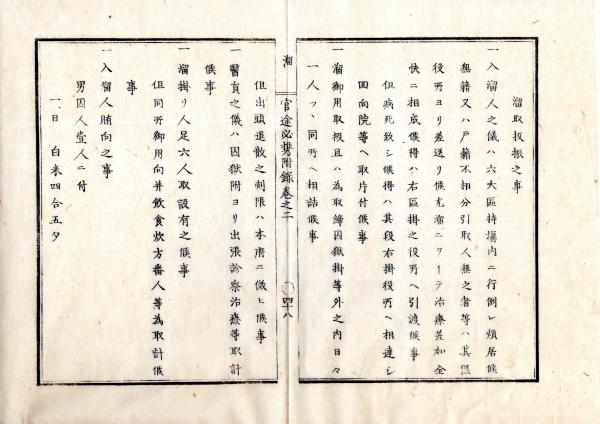 溜取扱振之事
一入溜人之儀ハ六大區持場内ニ行倒レ煩居候
無籍又ハ戸籍不相分引取人無之者等ハ其
役所ヨリ差送リ候尤溜ニヲイテ治療差加全
快ニ相成候得ハ右區掛之役所ヘ引渡候事
但病死致シ候得ハ其段右掛役所ヘ相達シ
回向院等ヘ取片付候事
一溜御用取扱且ハ為取締囚獄掛等外之内日々
一人ツヽ同所ヘ相詰候事
溜
官途必携附錄卷之二
〇四十八
但出頭退散之刻限ハ本府ニ倣ヒ候事
一醫員之儀ハ囚獄附ヨリ出張診察治療等取計
候事
一溜掛リ人足六人取設有之候事
但同所御用向并飲食炊方番人等為取計候
事
一入溜人賄向之事
男囚人壹人ニ付
一日 白米四合五夕